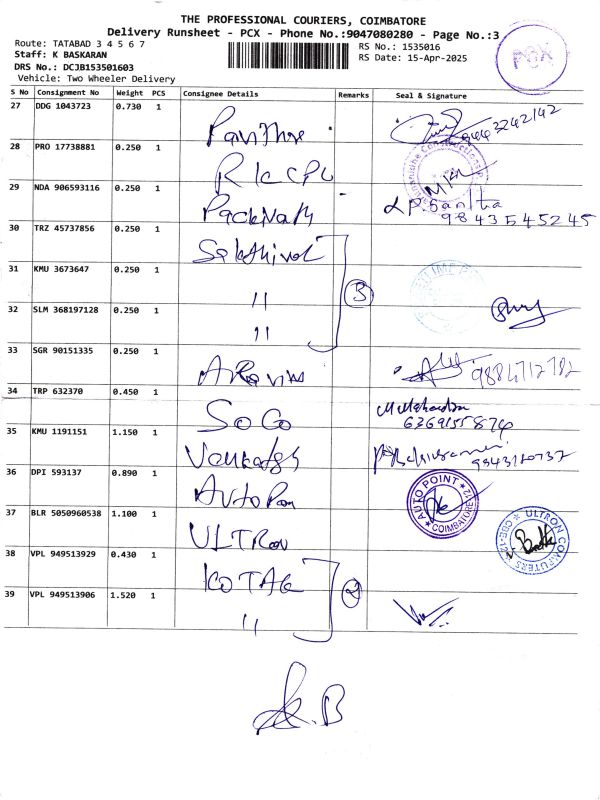 THE PROFESSIONAL COURIERS, COIMBATORE
Delivery Runsheet - PCX - Phone No.:9047080280 - Page No.:3
Route: TATABAD 3 4 5 6 7
Staff: K BASKARAN
DRS No.: DCJB153501603
Vehicle: Two Wheeler Delivery
RS No.: 1535016
RS Date: 15-Apr-2025
PCX
S No Consignment No Weight PCS Consignee Details Remarks Seal & Signature
27 DDG 1043723 0.730 1
28 PRO 17738881 0.250 1
29 NDA 906593116 0.250 1 9843545245
30 TRZ 45737856 0.250 1 Sakthivel
31 KMU 3673647 0.250 1 " 3
32 SLM 368197128 0.250 1 "
33 SGR 90151335 0.250 1 Aravin
34 TRP 632370 0.450 1 SoGo
35 KMU 1191151 1.150 1
36 DPI 593137 0.890 1 AUTO POINT COIMBATORE
37 BLR 5050960538 1.100 1 ULTRON COMPUTERS
38 VPL 949513929 0.430 1 KOTAK 2
39 VPL 949513906 1.520 1 "